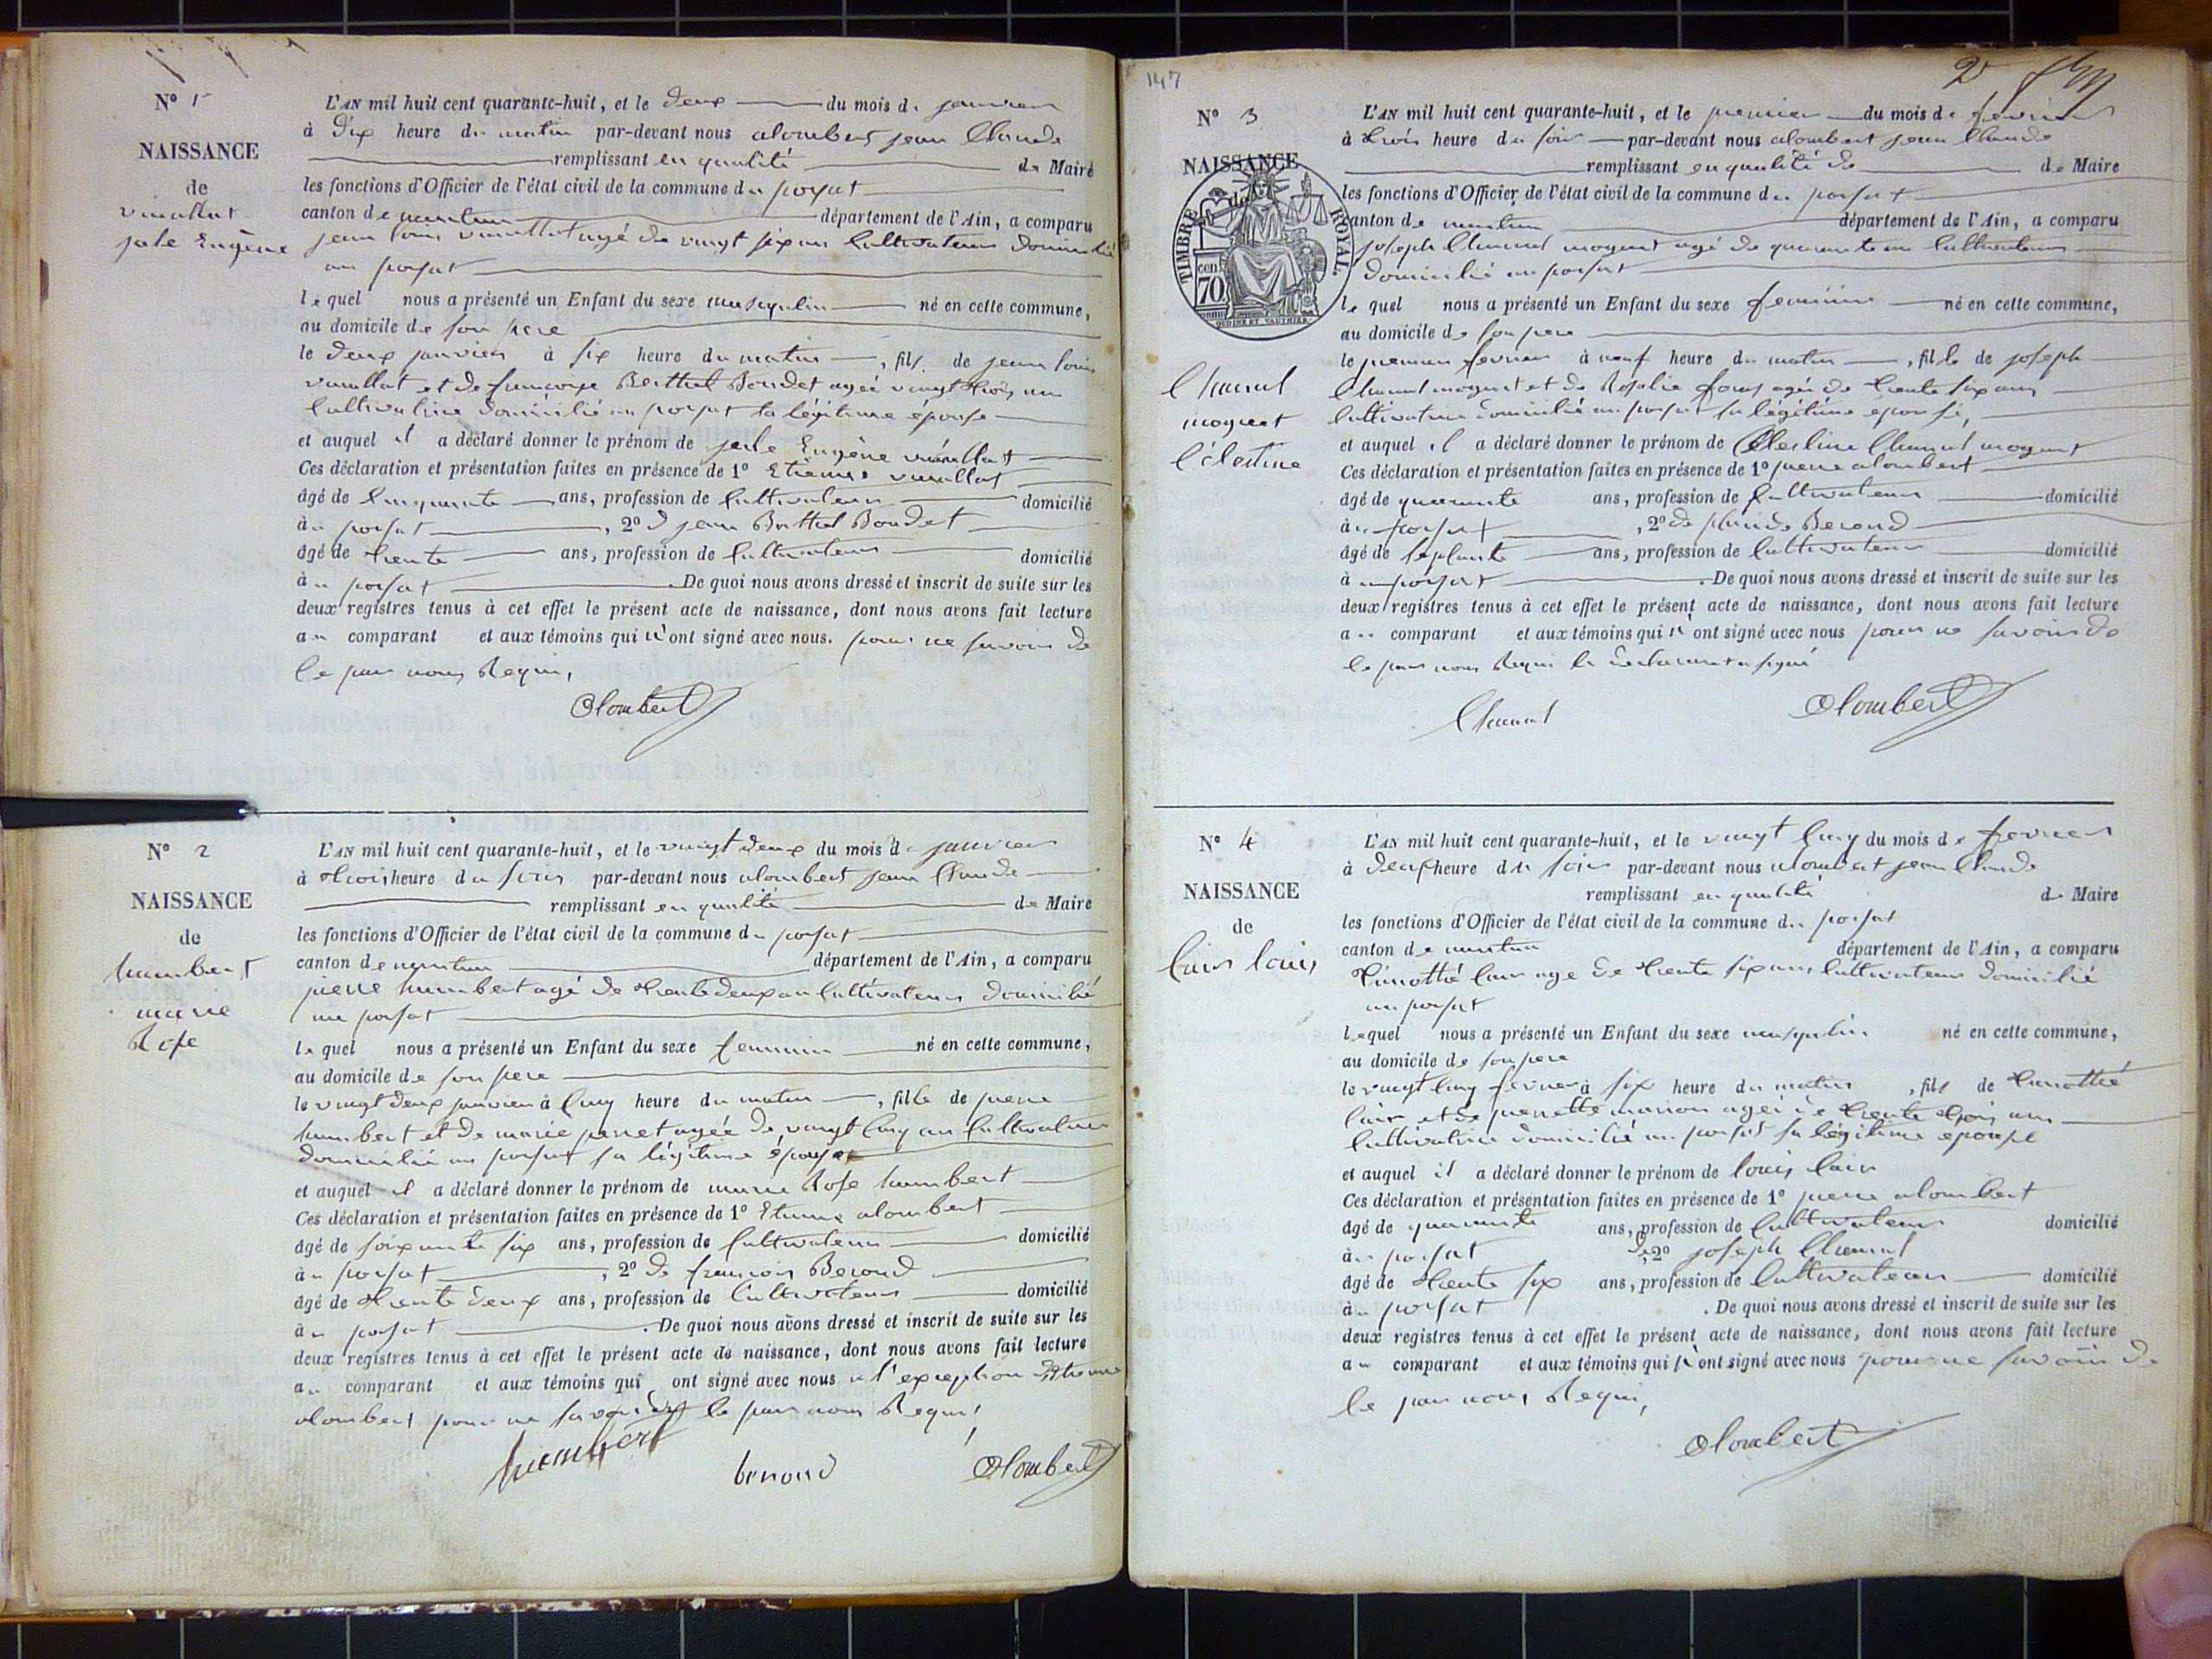 N° 1
NAISSANCE
de
vuaillat
jule Eugène
L'AN mil huit cent quarante-huit, et le deux du mois de janvier
à Dix heure du matin par-devant nous alombert jean Claude
remplissant en qualité de Maire
les fonctions d'Officier de l'état civil de la commune du port
canton de nantua département de l'Ain, a comparu
jean louis agé de vingt six ans Cultivateur domicilié
au
lequel nous a présenté un Enfant du sexe masqulin né en cette commune,
au domicile de son pere
le deux janvier à six heure du matin, fils de jean louis
et de francoise Berthet Bondet agée vingt trois an
Cultivatrice domicilié au sa légitime épouse
et auquel il a déclaré donner le prénom de jule Eugène
Ces déclaration et présentation faites en présence de 1° Etienne
âgé de Cinquante ans, profession de Cultivateur domicilié
à, 2° d jean Berthet Bondet
âgé de trente ans, profession de Cultivateur domicilié
à. De quoi nous avons dressé et inscrit de suite sur les
deux registres tenus à cet effet le présent acte de naissance, dont nous avons fait lecture
au comparant et aux témoins qui n'ont signé avec nous. pour ne savoir de
le par nous Requi,
Alombert
N° 2
NAISSANCE
de
humbert
marie
Rose
L'AN mil huit cent quarante-huit, et le vingt deux du mois d janvier
à trois heure du soir par-devant nous alombert jean Claude
remplissant en qualité de Maire
les fonctions d'Officier de l'état civil de la commune du
canton de nantua département de l'Ain, a comparu
pierre humbert agé de trente deux an Cultivateur domicilié
au
lequel nous a présenté un Enfant du sexe feminin né en cette commune,
au domicile de son pere
le vingt deux janvier à Cinq heure du matin, fille de pierre
humbert et de marie perret agée de vingt Cinq an Cultivatrice
domicilié au sa légitime épouse
et auquel il a déclaré donner le prénom de marie Rose humbert
Ces déclaration et présentation faites en présence de 1° Etienne alombert
âgé de soixante six ans, profession de Cultivateur domicilié
à, 2° de francois Berond
âgé de trente deux ans, profession de Cultivateur domicilié
à. De quoi nous avons dressé et inscrit de suite sur les
deux registres tenus à cet effet le présent acte de naissance, dont nous avons fait lecture
au comparant et aux témoins qui ont signé avec nous a l'exception Etienne
alombert pour ne savoir de le par nous Requi,
humbert
berond
Alombert
147
2
N° 3
NAISSANCE
de
TIMBRE ROYAL.
cen 70
Chanel
moguet
Célestine
L'AN mil huit cent quarante-huit, et le premier du mois de fevrier
à trois heure du soir par-devant nous alombert jean Claude
remplissant en qualité de de Maire
les fonctions d'Officier de l'état civil de la commune du
canton de nantua département de l'Ain, a comparu
joseph Chanel moguet agé de quarante an Cultivateur
domicilié au
lequel nous a présenté un Enfant du sexe feminin né en cette commune,
au domicile de son pere
le premier fevrier à neuf heure du matin, fille de joseph
Chanel moguet et de Rosalie agée de trente six ans
Cultivatrice domicilié au sa légitime épouse,
et auquel il a déclaré donner le prénom de Célestine Chanel moguet
Ces déclaration et présentation faites en présence de 1° pierre alombert
âgé de quarante ans, profession de Cultivateur domicilié
à, 2° de Claude Berond
âgé de septante ans, profession de Cultivateur domicilié
à. De quoi nous avons dressé et inscrit de suite sur les
deux registres tenus à cet effet le présent acte de naissance, dont nous avons fait lecture
au comparant et aux témoins qui n'ont signé avec nous pour ne savoir de
le par nous Requi le declarant a signé
Chanel
Alombert
N° 4
NAISSANCE
de
lair louis
L'AN mil huit cent quarante-huit, et le vingt Cinq du mois de fevrier
à deux heure du soir par-devant nous alombert jean Claude
remplissant en qualité de Maire
les fonctions d'Officier de l'état civil de la commune du
canton de nantua département de l'Ain, a comparu
Timothé lair age de trente six ans Cultivateur domicilié
au
lequel nous a présenté un Enfant du sexe masqulin né en cette commune,
au domicile de son pere
le vingt Cinq fevrier à six heure du matin, fils de timothé
lair et de pierrette agée de trente trois ans
Cultivatrice domicilié au sa légitime épouse
et auquel il a déclaré donner le prénom de louis lair
Ces déclaration et présentation faites en présence de 1° pierre alombert
âgé de quarante ans, profession de Cultivateur domicilié
à, de 2° joseph Chanel
âgé de trente six ans, profession de Cultivateur domicilié
à. De quoi nous avons dressé et inscrit de suite sur les
deux registres tenus à cet effet le présent acte de naissance, dont nous avons fait lecture
au comparant et aux témoins qui n'ont signé avec nous pour ne savoir de
le par nous Requi,
Alombert